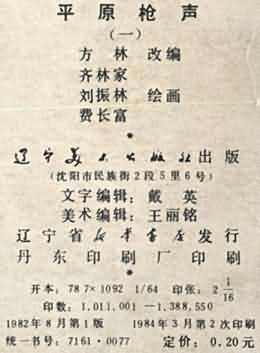 平原枪声
(一)
方林 改编
齐林家
刘振林 绘画
费长富
*
辽宁美术出版社出版
(沈阳市民族街2段5里6号)
文字编辑:戴英
美术编辑:王丽铭
辽宁省新华书店发行
丹东印刷厂印刷
*
开本:787×1092 1/64 印张:2 1/16
印数:1,011,001—1,388,550
1982年8月第1版 1984年3月第2次印刷
统一书号:7161·0077 定价:0.20元